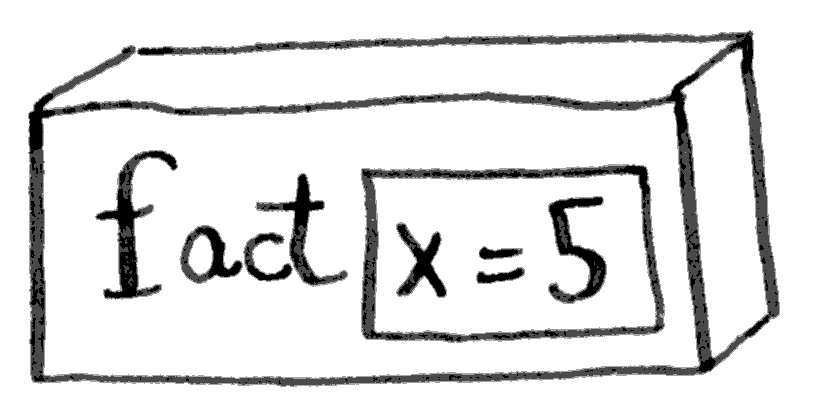 fact x = 5